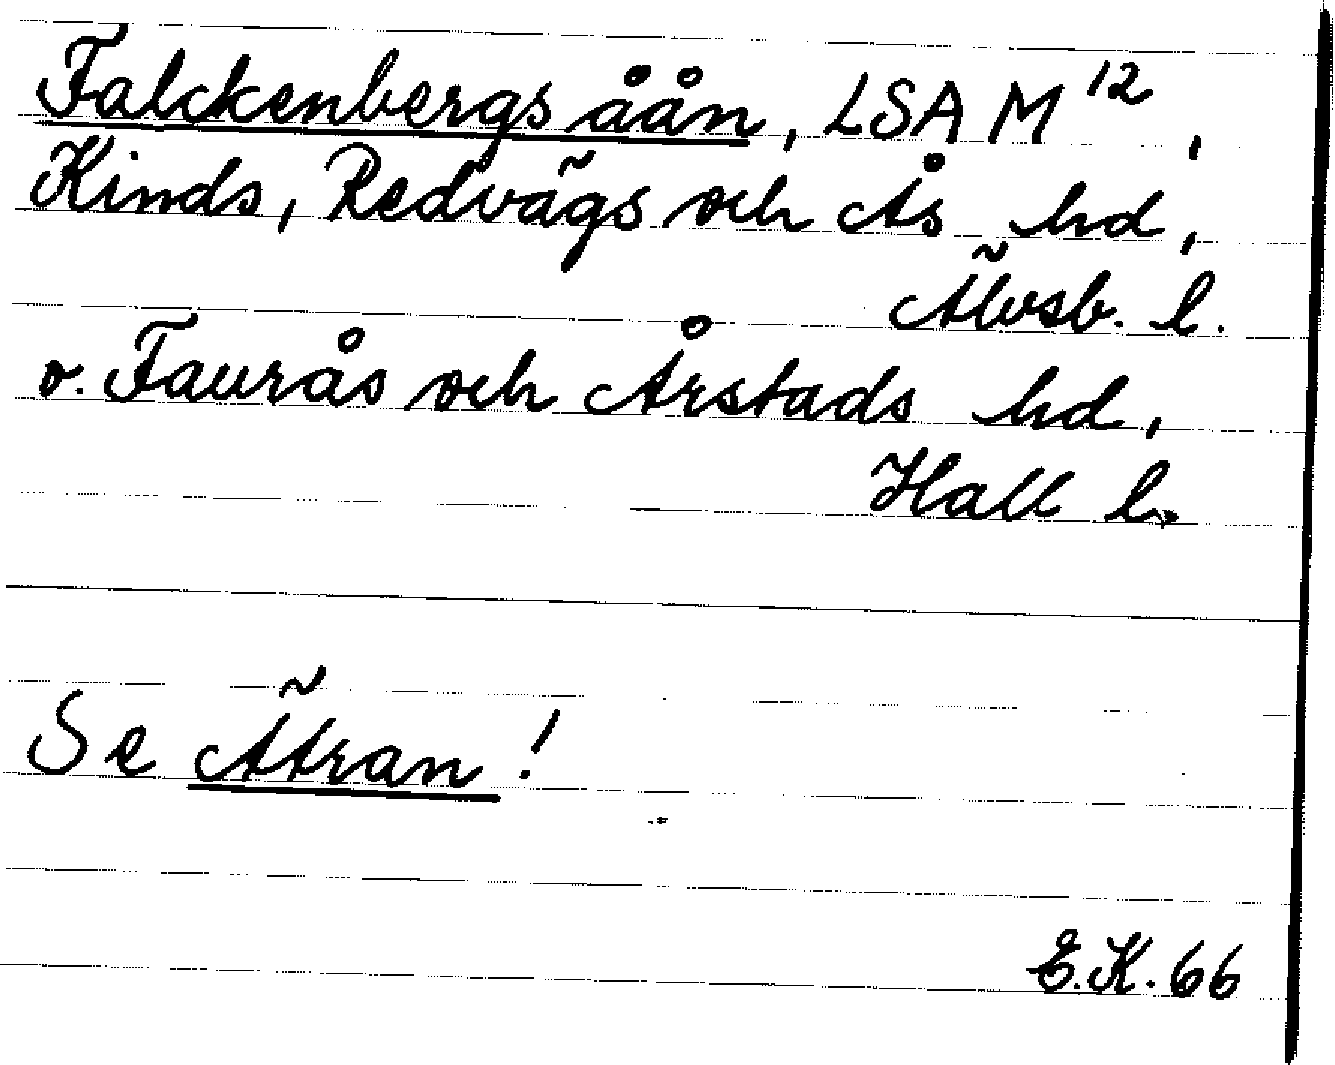 Falckenbergs åån, LSA M¹²,
Kinds, Redvägs och Ås hd,
Älvsb. l.
o. Faurås och Årstads hd,
Hall l.
Se Ätran!
E.K. 66